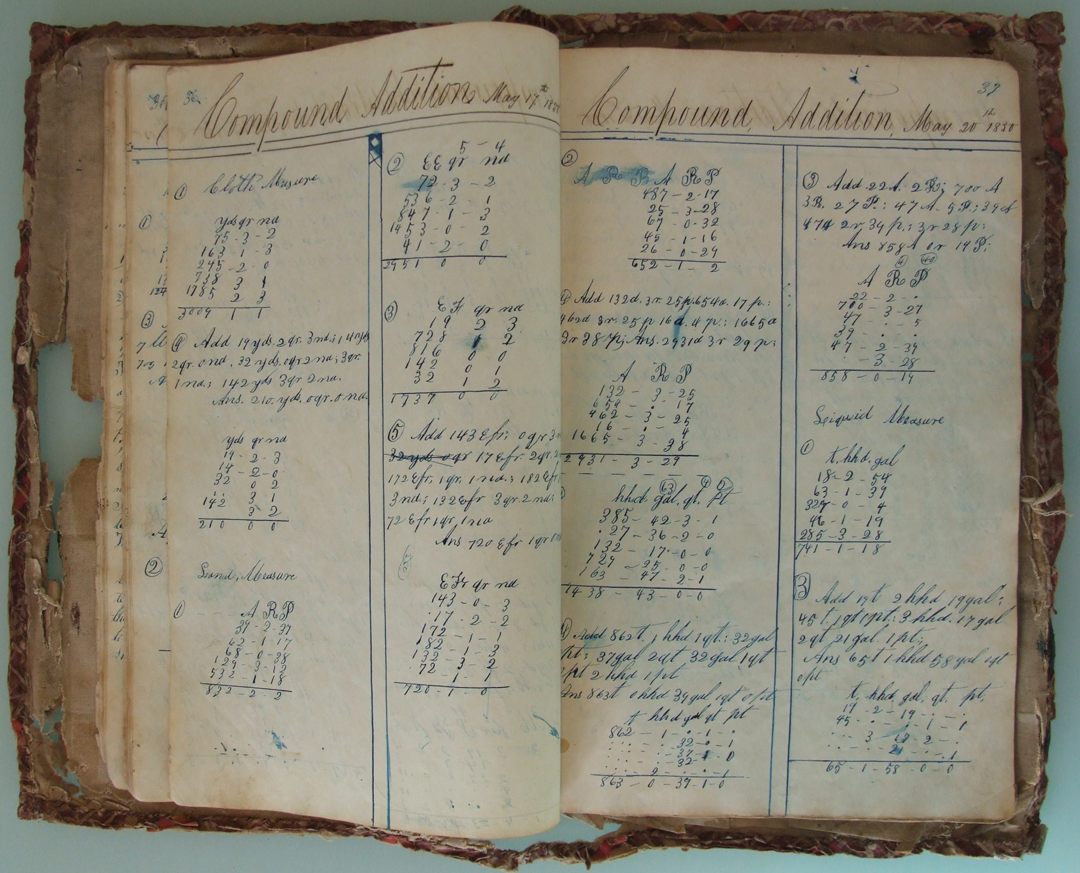 36
Compound Addition May 17th 1850
Cloth Measure
①
① yds qr na
75 - 3 - 2
163 - 1 - 3
245 - 2 - 0
738 3 1
1785 2 3
3009 1 1
④ Add 19 yds 2 qr. 3 na; 14 yds
2 qr. 0 na. 32 yds. 0 qr 2 na; 3 qr.
1 na; 142 yds 3 qr 2 na.
Ans. 210. yds. 0 qr. 0 na.
yds qr na
19 - 2 - 3
14 - 2 - 0
32 0 2
.. 3 1
142 3 2
210 0 0
② Land, Measure
① A R P
39 - 2 - 37
62 - 1 - 17
68 - 0 - 38
129 - 3 - 12
532 - 1 - 18
832 - 2 - 2
5 - 4
② EE qr na
72 - 3 - 2
536 - 2 - 1
847 - 1 - 3
1453 - 0 - 2
41 - 2 - 0
2951 0 0
③ E F qr na
19 2 3
728 1 2
816 0 0
142 0 1
32 1 2
1737 0 0
⑤ Add 143 E fr; 0 qr 3
32 yds 0 qr 17 E fr. 2 qr. 2
172 E fr. 1 qr. 1 na.; 182 E fr
3 na; 132 E fr 3 qr. 2 na;
72 E fr 1 qr, 1 na
Ans 720 E fr 1 qr
E Fr qr na
143 - 0 - 3
17 - 2 - 2
172 - 1 - 1
182 - 1 - 3
132 - 3 - 2
72 - 1 - 1
720 - 1 - 0
Compound, Addition, May 20th 1850
②
A R P A R P
487 - 2 - 17
25 - 3 - 28
67 - 0 - 32
45 - 1 - 16
26 - 0 - 29
652 - 1 - 2
Add 132 a. 3 r. 25 p 654 a. 17 p.:
462 a 3 r: 25 p 16 a. 4 p.: 1665 a
3 r 38 p; Ans. 2931 a 3 r 29 p:
A R P
132 - 3 - 25
654 - . 17
462 - 3 - 25
16 - . 4
1665 - 3 - 38
2931 - 3 - 29
63 4 2
hhd gal, qt. Pt
385 - 42 - 3 - 1
. 27 - 36 - 2 - 0
132 - 17 - 0 - 0
729 - 25 - 0 - 0
163 - 47 - 2 - 1
1438 - 43 - 0 - 0
Add 862 t, 1 hhd 1 qt.: 32 gal
1 pt: 37 gal 2 qt 32 gal 1 qt
1 pt 2 hhd 1 pt
Ans 863 t 0 hhd 39 gal 1 qt 0 pt
t hhd gal qt pt
862 - 1 - . 1 - .
32 - . - 1
863 - 0 - 39 - 1 - 0
③ Add 22 A. 2 R; 700 A
3 R. 27 P.: 47 A. 5 P; 39 A
47 A 2 r 39 p.; 3 r 28 p;
Ans 858 A 0 r 14 P:
④ 40
A R P
22 - 2 - .
700 - 3 - 27
47 . - 5
39 - . .
47 - 2 - 39
- 3 - 28
858 - 0 - 19
Leiqwid Measure
① t. hhd. gal
18 - 2 - 54
63 - 1 - 39
327 - 0 - 4
46 - 1 - 19
285 - 3 - 28
741 - 1 - 18
3 Add 19 t 2 hhd 19 gal:
45 t. 1 qt 1 pt: 3 hhd. 17 gal
2 qt 21 gal. 1 pt;
Ans 65 t 1 hhd 58 gal 1 qt
0 pt
t, hhd gal, qt pt.
19 - 2 - 19 - . - .
45 - . . - 1 - 1
. 3 - 17 2 - .
65 - 1 - 58 - 0 - 0